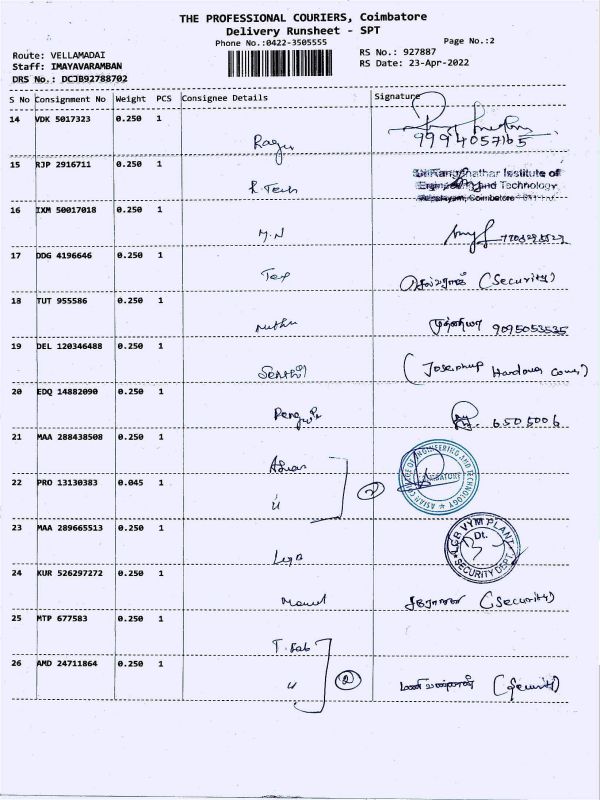 THE PROFESSIONAL COURIERS, Coimbatore
Delivery Runsheet - SPT
Phone No.:0422-3505555
Page No.:2
Route: VELLAMADAI
RS No.: 927887
Staff: IMAYAVARAMBAN
RS Date: 23-Apr-2022
DRS No.: DCJB92788702
S No Consignment No Weight PCS Consignee Details Signature
14 VDK 5017323 0.250 1
Ragu
9994057165
15 RJP 2916711 0.250 1
R. Tech
Institute of
Engineering and Technology
Coimbatore
16 IXM 50017018 0.250 1
M.N
17 DDG 4196646 0.250 1
Tex (Security)
18 TUT 955586 0.250 1
Muthu 9095053535
19 DEL 120346488 0.250 1
(Josephup
20 EDQ 14882090 0.250 1
6505006
21 MAA 288438508 0.250 1
Asian
ASIAN COLLEGE OF ENGINEERING AND TECHNOLOGY
COIMBATORE
22 PRO 13130383 0.045 1
" 2
23 MAA 289665513 0.250 1
LGB
LGB VYM PLANT
Dt.
SECURITY DEPT.
24 KUR 526297272 0.250 1
(Security)
25 MTP 677583 0.250 1
T. Fab
26 AMD 24711864 0.250 1
" 2
(Security)